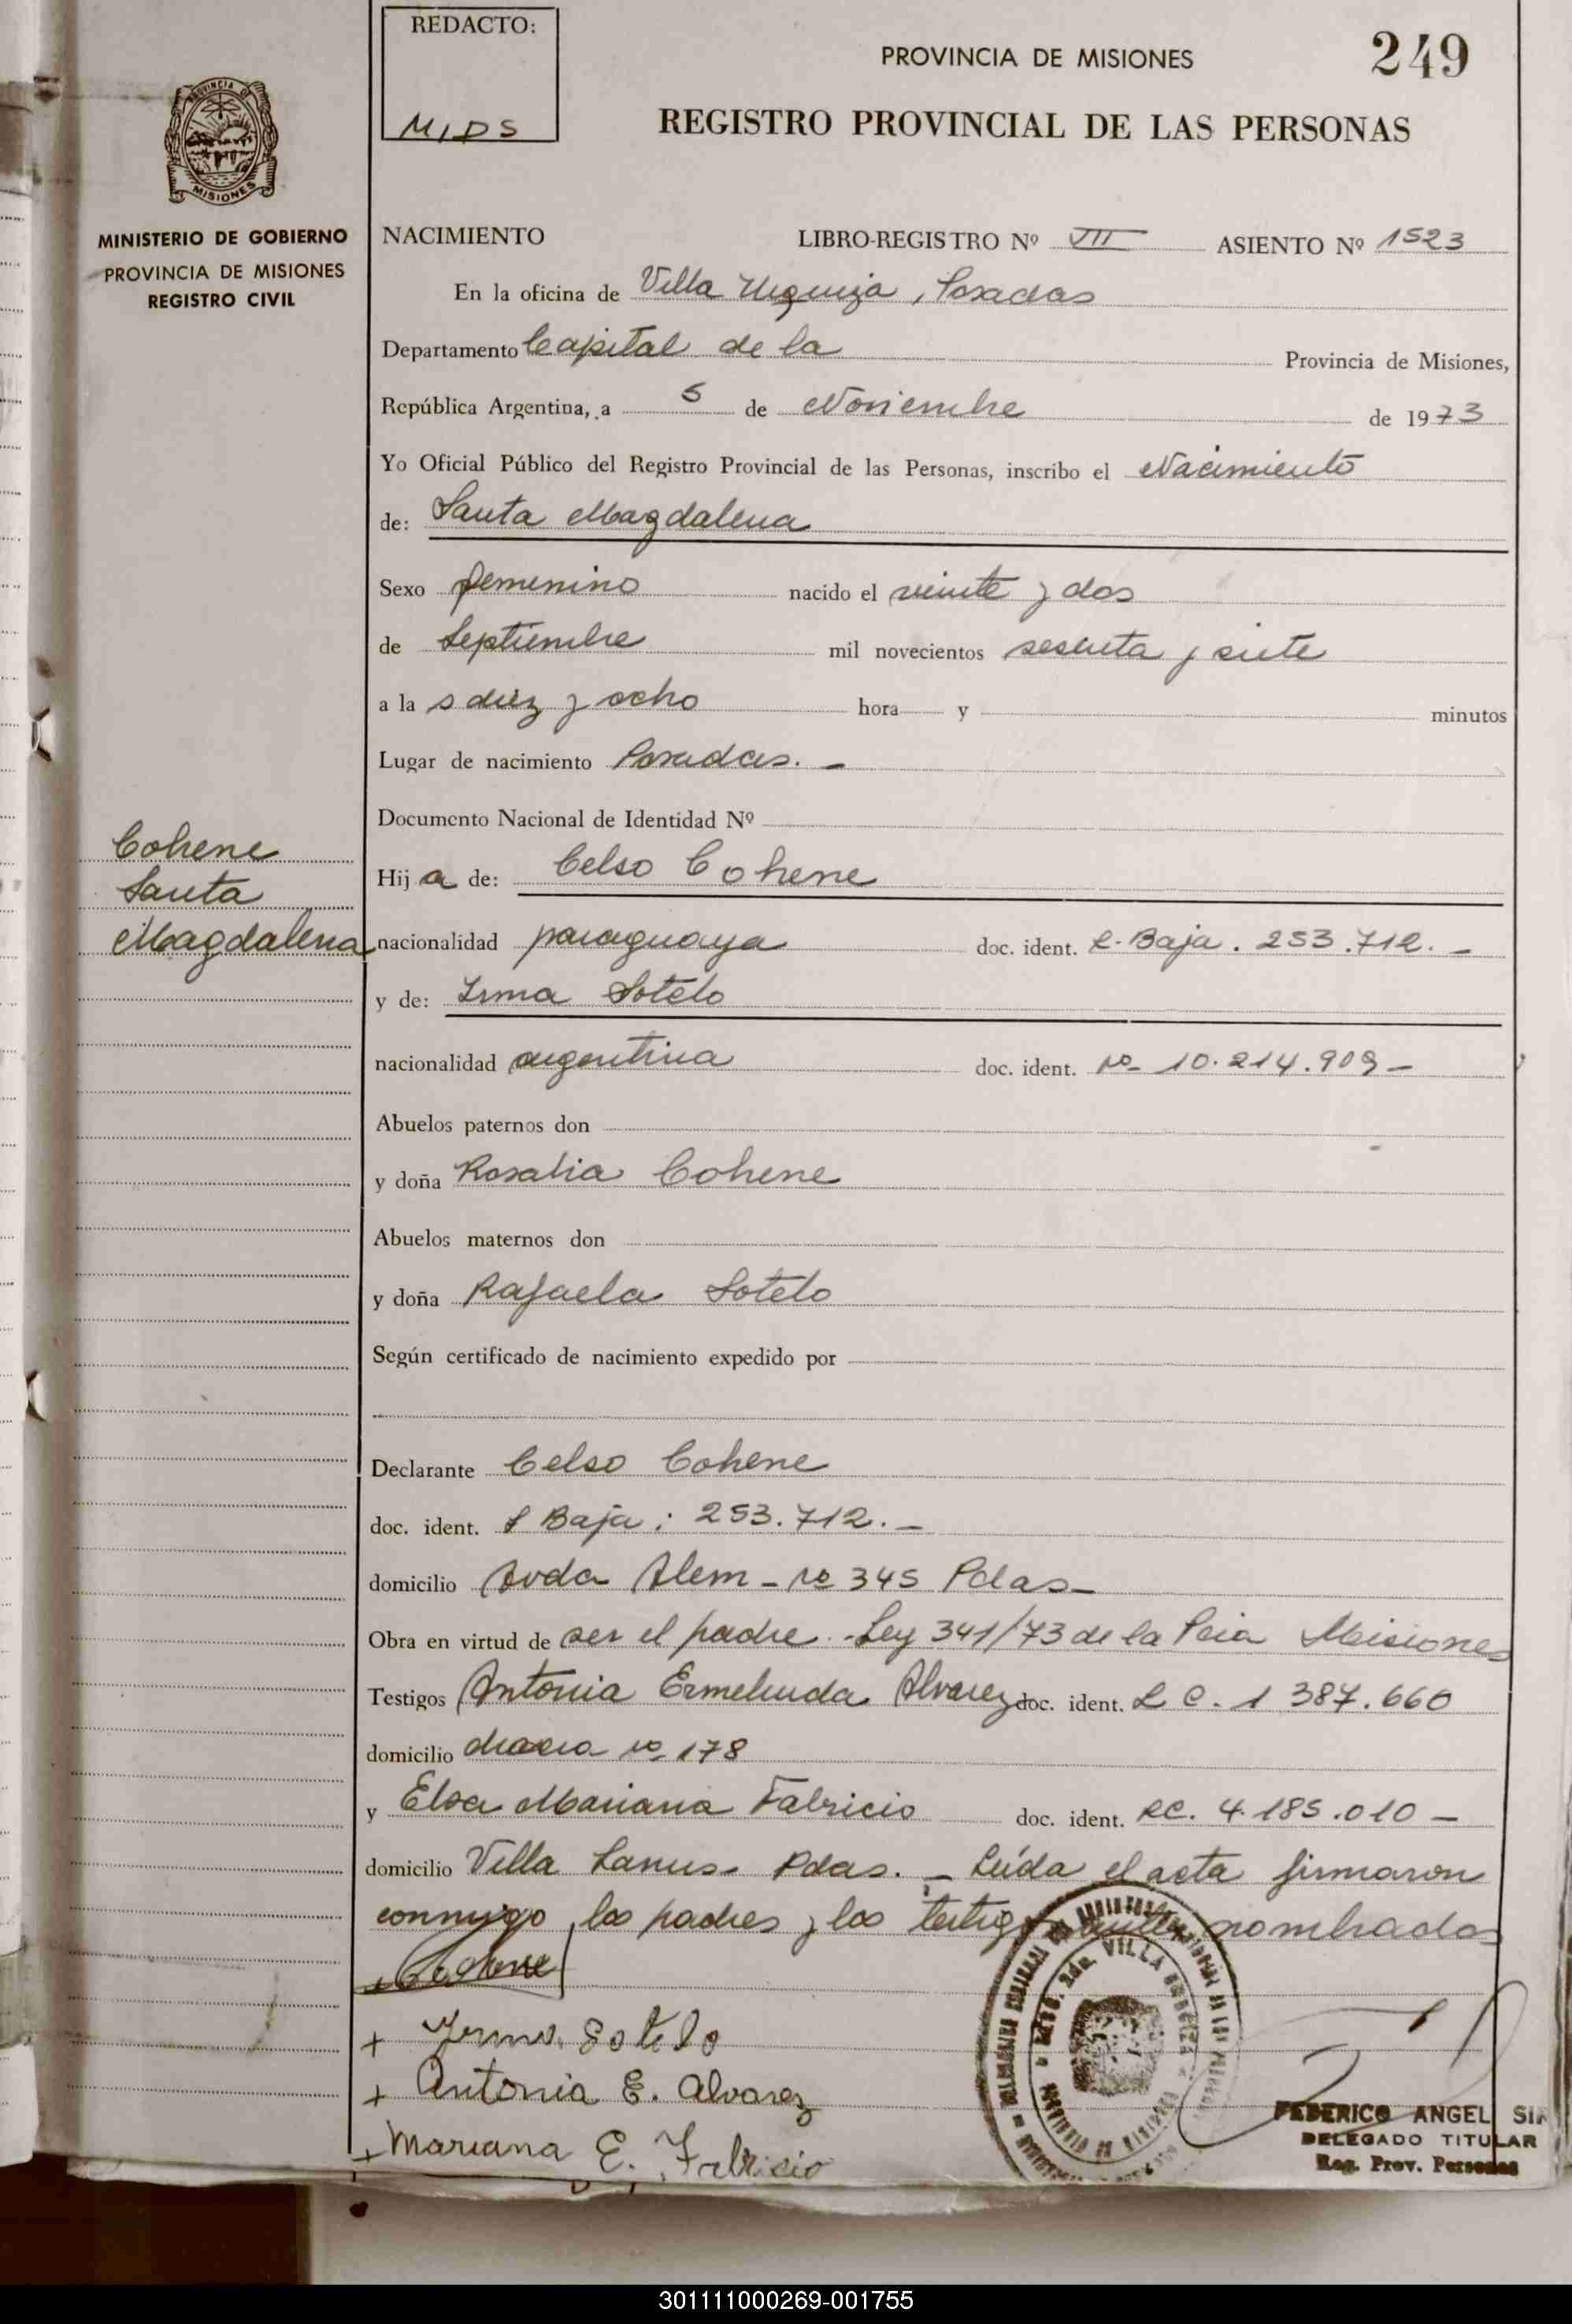 REDACTO:
MIDS
PROVINCIA DE MISIONES
249
REGISTRO PROVINCIAL DE LAS PERSONAS
MISIONES
MINISTERIO DE GOBIERNO
PROVINCIA DE MISIONES
REGISTRO CIVIL
NACIMIENTO LIBRO-REGISTRO Nº VII ASIENTO Nº 1523
En la oficina de Villa Urquiza, Posadas
Departamento Capital de la Provincia de Misiones,
República Argentina, a 5 de Noviembre de 1973
Yo Oficial Público del Registro Provincial de las Personas, inscribo el Nacimiento
de: Santa Magdalena
Sexo femenino nacido el veinte y dos
de Septiembre mil novecientos sesenta y siete
a la s diez y ocho hora y minutos
Lugar de nacimiento Posadas. -
Documento Nacional de Identidad Nº
Cohene
Santa
Magdalena
Hij a de: Celso Cohene
nacionalidad paraguaya doc. ident. R. Baja. 253.712. -
y de: Irma Sotelo
nacionalidad argentina doc. ident. Nº 10.214.909 -
Abuelos paternos don
y doña Rosalia Cohene
Abuelos maternos don
y doña Rafaela Sotelo
Según certificado de nacimiento expedido por
Declarante Celso Cohene
doc. ident. Baja: 253.712. -
domicilio Avda Alem - Nº 345 Pdas -
Obra en virtud de ser el padre. - Ley 341/73 de la Pcia Misiones
Testigos Antonia Ermelinda Alvarez doc. ident. L C. 1 387.660
domicilio Nº 178
y Elsa Mariana Fabricio doc. ident. 4.185.010 -
domicilio Villa Lanus. Pdas. - Leída el acta firmaron
conmigo, los padres y los testigos nombrados
Cohene
+ Irma Sotelo
+ Antonia E. Alvarez
+ Mariana E. Fabricio
VILLA
FEDERICO ANGEL
DELEGADO TITULAR
Reg. Prov. Personas
301111000269-001755